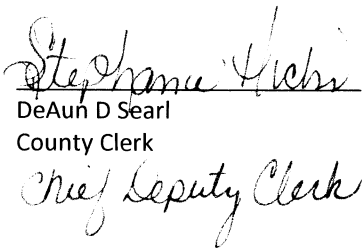 Stephanie Hicks
DeAun D Searl
County Clerk
Chief Deputy Clerk